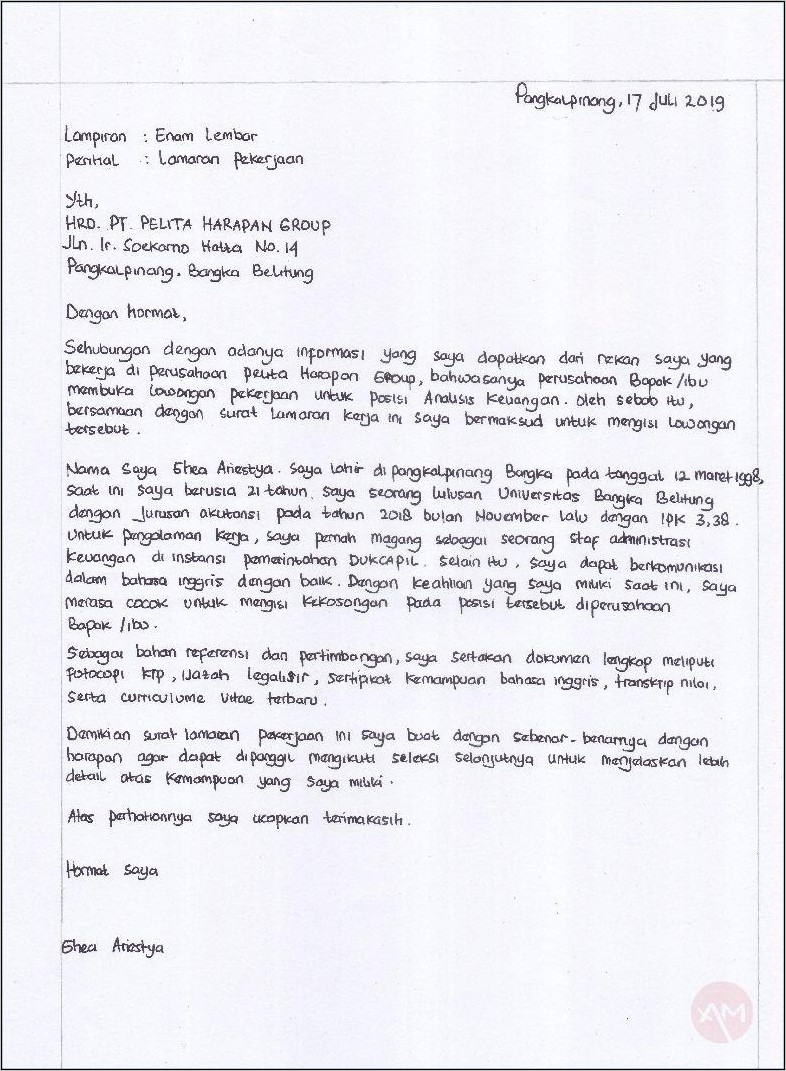 Pangkalpinang, 17 Juli 2019
Lampiran : Enam Lembar
Perihal : Lamaran Pekerjaan
Yth,
HRD. PT. PELITA HARAPAN GROUP
Jln. Ir. Soekarno Hatta No. 14
Pangkalpinang. Bangka Belitung
Dengan hormat,
Sehubungan dengan adanya informasi yang saya dapatkan dari rekan saya yang
bekerja di perusahaan pelita Harapan Group, bahwasanya perusahaan Bapak/ibu
membuka lowongan pekerjaan untuk posisi Analisis Keuangan. oleh sebab itu,
bersamaan dengan surat lamaran kerja ini saya bermaksud untuk mengisi lowongan
tersebut.
Nama Saya Ghea Ariestya. Saya lahir di pangkalpinang Bangka pada tanggal 12 maret 1998,
saat ini saya berusia 21 tahun. saya seorang lulusan Universitas Bangka Belitung
dengan Jurusan akutansi pada tahun 2018 bulan November lalu dengan IPK 3,38.
untuk pengalaman kerja, saya pernah magang sebagai seorang staf administrasi
Keuangan di instansi pemerintahan DUKCAPIL. selain itu, saya dapat berkomunikasi
dalam bahasa inggris dengan baik. Dengan keahlian yang saya miliki saat ini, saya
merasa cocok untuk mengisi kekosongan pada posisi tersebut diperusahaan
Bapak/ibu.
Sebagai bahan referensi dan pertimbangan, saya sertakan dokumen lengkap meliputi
fotocopi ktp, ijazah legalisir, sertipikat kemampuan bahasa inggris, transkrip nilai,
serta curriculume vitae terbaru.
Demikian surat lamaran pekerjaan ini saya buat dengan sebenar-benarnya dengan
harapan agar dapat dipanggil mengikuti seleksi selanjutnya untuk menjelaskan lebih
detail atas kemampuan yang saya miliki.
Atas perhatiannya saya ucapkan terimakasih.
Hormat saya
Ghea Ariestya
AM